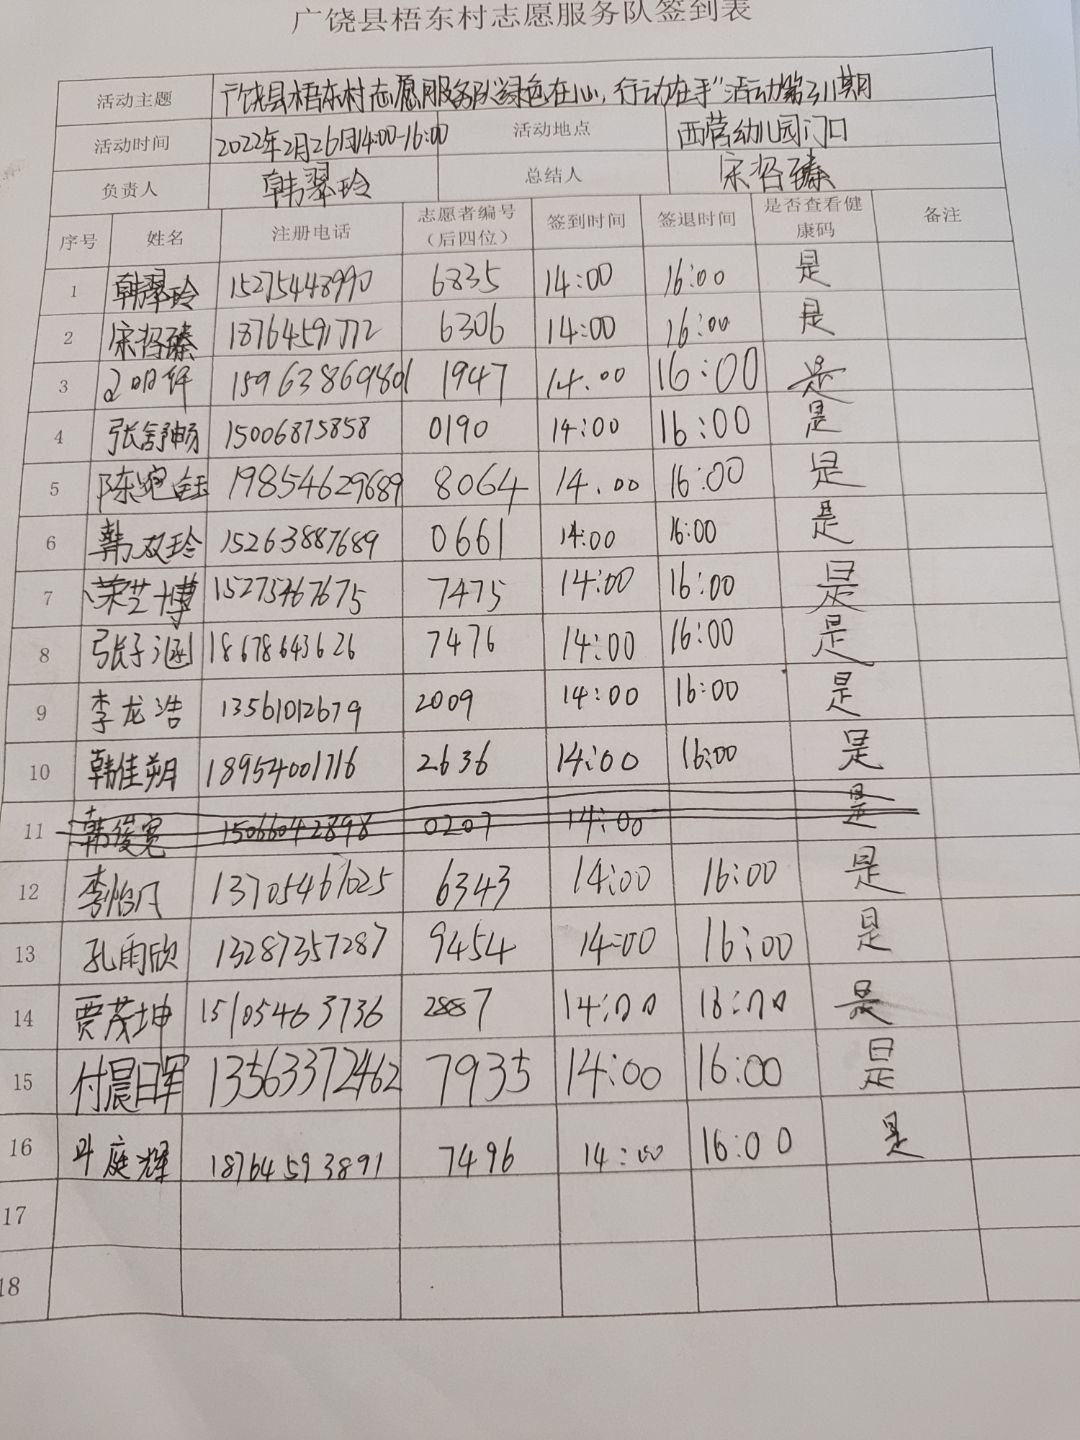 广饶县梧东村志愿服务队签到表
活动主题 广饶县梧东村志愿服务队"绿色在心,行动在手"活动第311期
活动时间 2022年2月26日14:00-16:00 活动地点 西营幼儿园门口
负责人 韩翠玲 总结人 宋召臻
序号 姓名 注册电话 志愿者编号（后四位） 签到时间 签退时间 是否查看健康码 备注
1 韩翠玲 15275448990 6835 14:00 16:00 是
2 宋召臻 18764591772 6306 14:00 16:00 是
3 1947 14.00 16:00 是
4 张舒畅 15006875858 0190 14:00 16:00 是
5 19854629689 8064 14.00 16:00 是
6 韩双玲 15263887689 0661 14:00 16:00 是
7 荣芝博 15275467675 7475 14:00 16:00 是
8 张子涵 18678643626 7476 14:00 16:00 是
9 李龙浩 13561012679 2009 14:00 16:00 是
10 韩佳朔 18954001716 2636 14:00 16:00 是
11 韩俊宽 15066042898 0207 14:00 是
12 李怡凡 13705461025 6343 14:00 16:00 是
13 孔雨欣 13287357287 9454 14:00 16:00 是
14 贾茂坤 15105463736 2887 14:00 16:00 是
15 付晨晖 13563372462 7935 14:00 16:00 是
16 叶庭辉 18764593891 7496 14:00 16:00 是
17
18